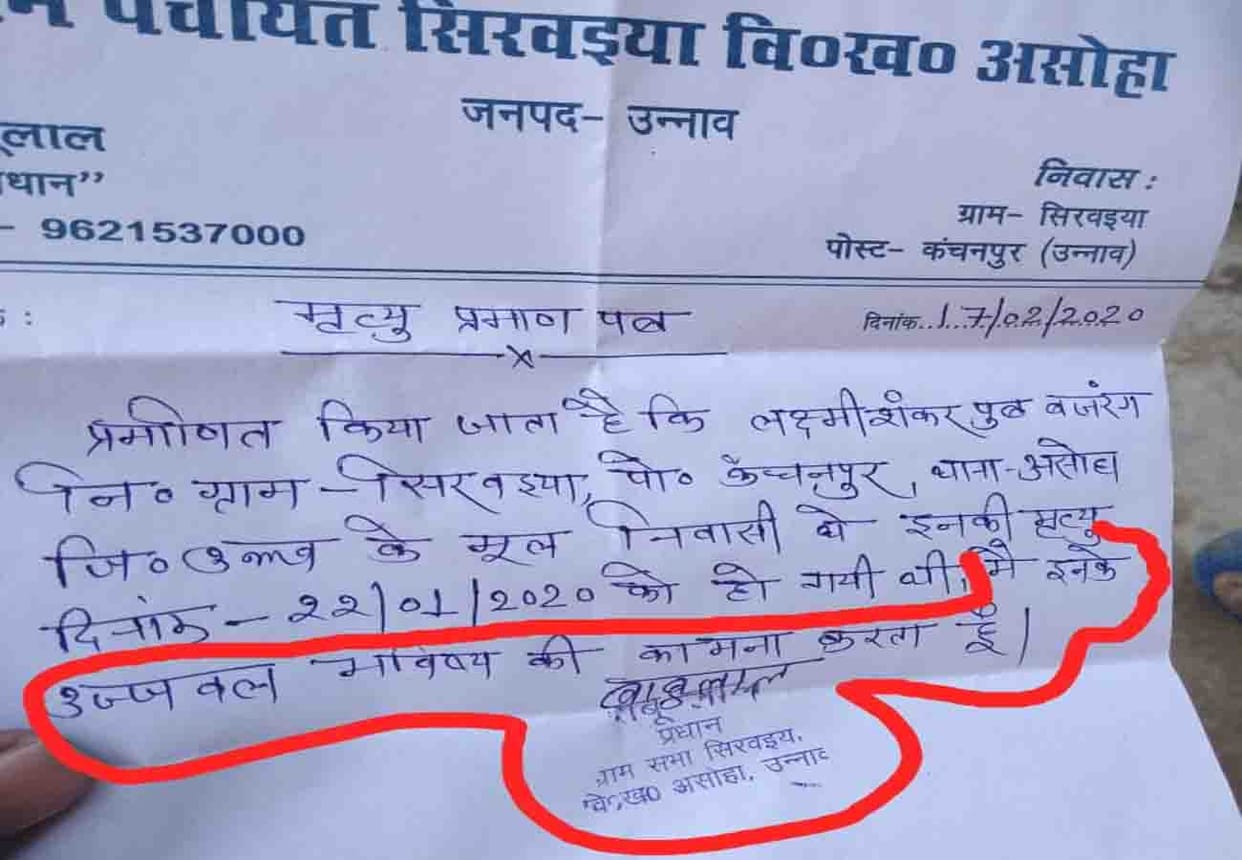 पंचायत सिरवइया वि०ख० असोहा
जनपद- उन्नाव
लाल
धान”
- 9621537000
निवास :
ग्राम- सिरवइया
पोस्ट- कंचनपुर (उन्नाव)
मृत्यु प्रमाण पत्र
दिनांक...17/02/2020
प्रमाणित किया जाता है कि लक्ष्मीशंकर पुत्र बजरंग
नि० ग्राम - सिरवइया, पो० कंचनपुर, थाना-असोहा
जि० उन्नाव के मूल निवासी थे इनकी मृत्यु
दिनांक - २२/०1/2020 को हो गयी थी, मै इनके
उज्जवल भविष्य की कामना करता हूँ।
बाबूलाल
प्रधान
ग्राम सभा सिरवइय,
वि०ख० असोहा, उन्नाव